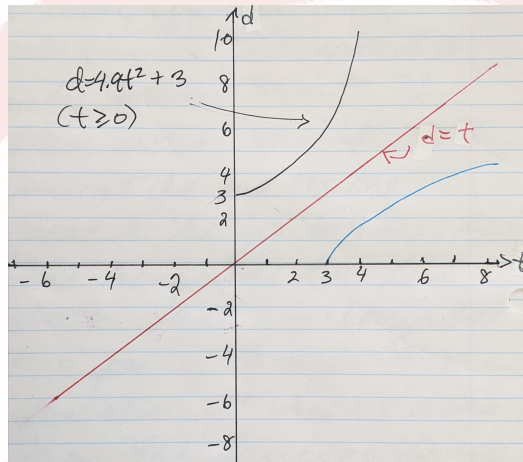 d
10
8
6
4
3
2
d=4.9t² + 3
(t ≥ 0)
d = t
-6 -4 -2 2 3 4 6 8 t
-2
-4
-6
-8